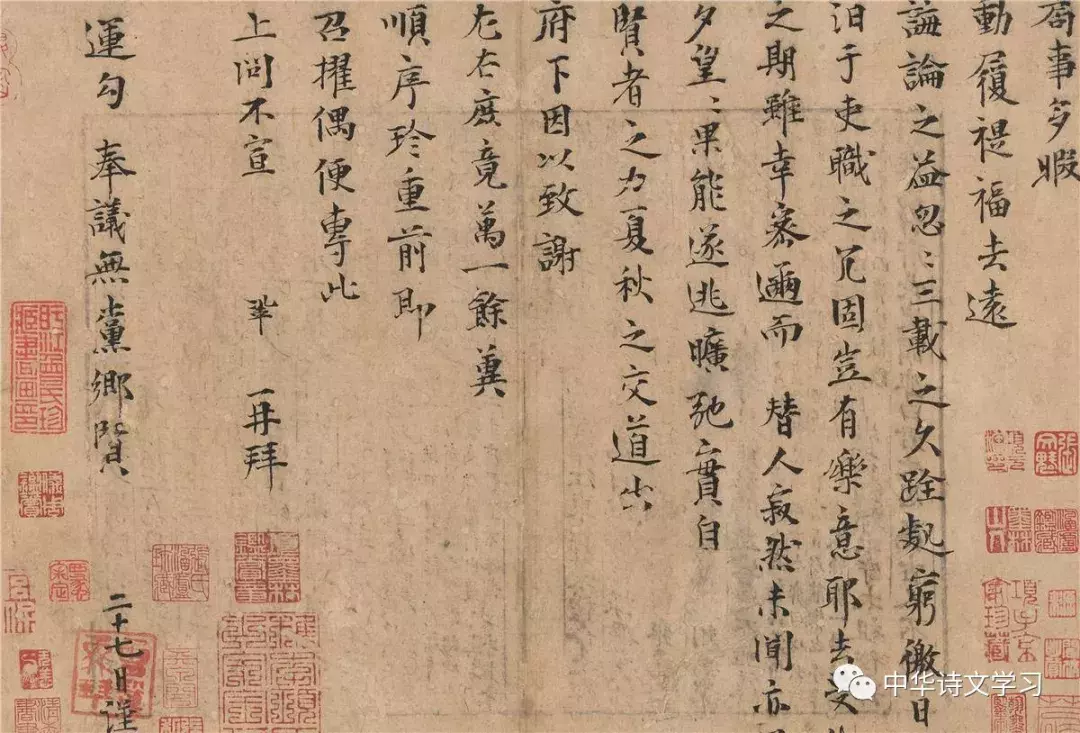 局事多暇
動履禔福去遠
誨論之益忽〻三載之久跧處窮徼日
汩于吏職之冗固豈有樂意耶去受
之期雖幸密邇而 替人寂然未聞亦
夕望〻果能遂逃曠弛實自
賢者之力夏秋之交道出
府下因以致謝
左右庶竟萬一餘冀
順序珍重前即
召擢偶便專此
上問不宣 鞏 再拜
運勾 奉議無黨鄉賢 二十七日謹
中华诗文学习